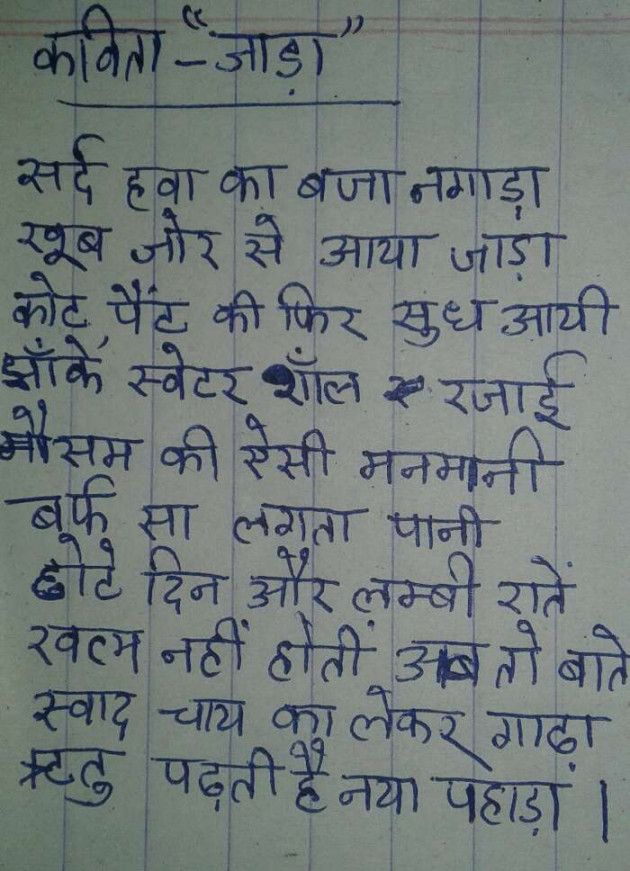 कविता - "जाड़ा"
सर्द हवा का बजा नगाड़ा
खूब जोर से आया जाड़ा
कोट पैंट की फिर सुध आयी
झाँके स्वेटर शॉल रजाई
मौसम की ऐसी मनमानी
बर्फ सा लगता पानी
छोटे दिन और लम्बी रातें
खत्म नहीं होतीं अब तो बाते
स्वाद चाय का लेकर गाढ़ा
ऋतु पढ़ती है नया पहाड़ा ।